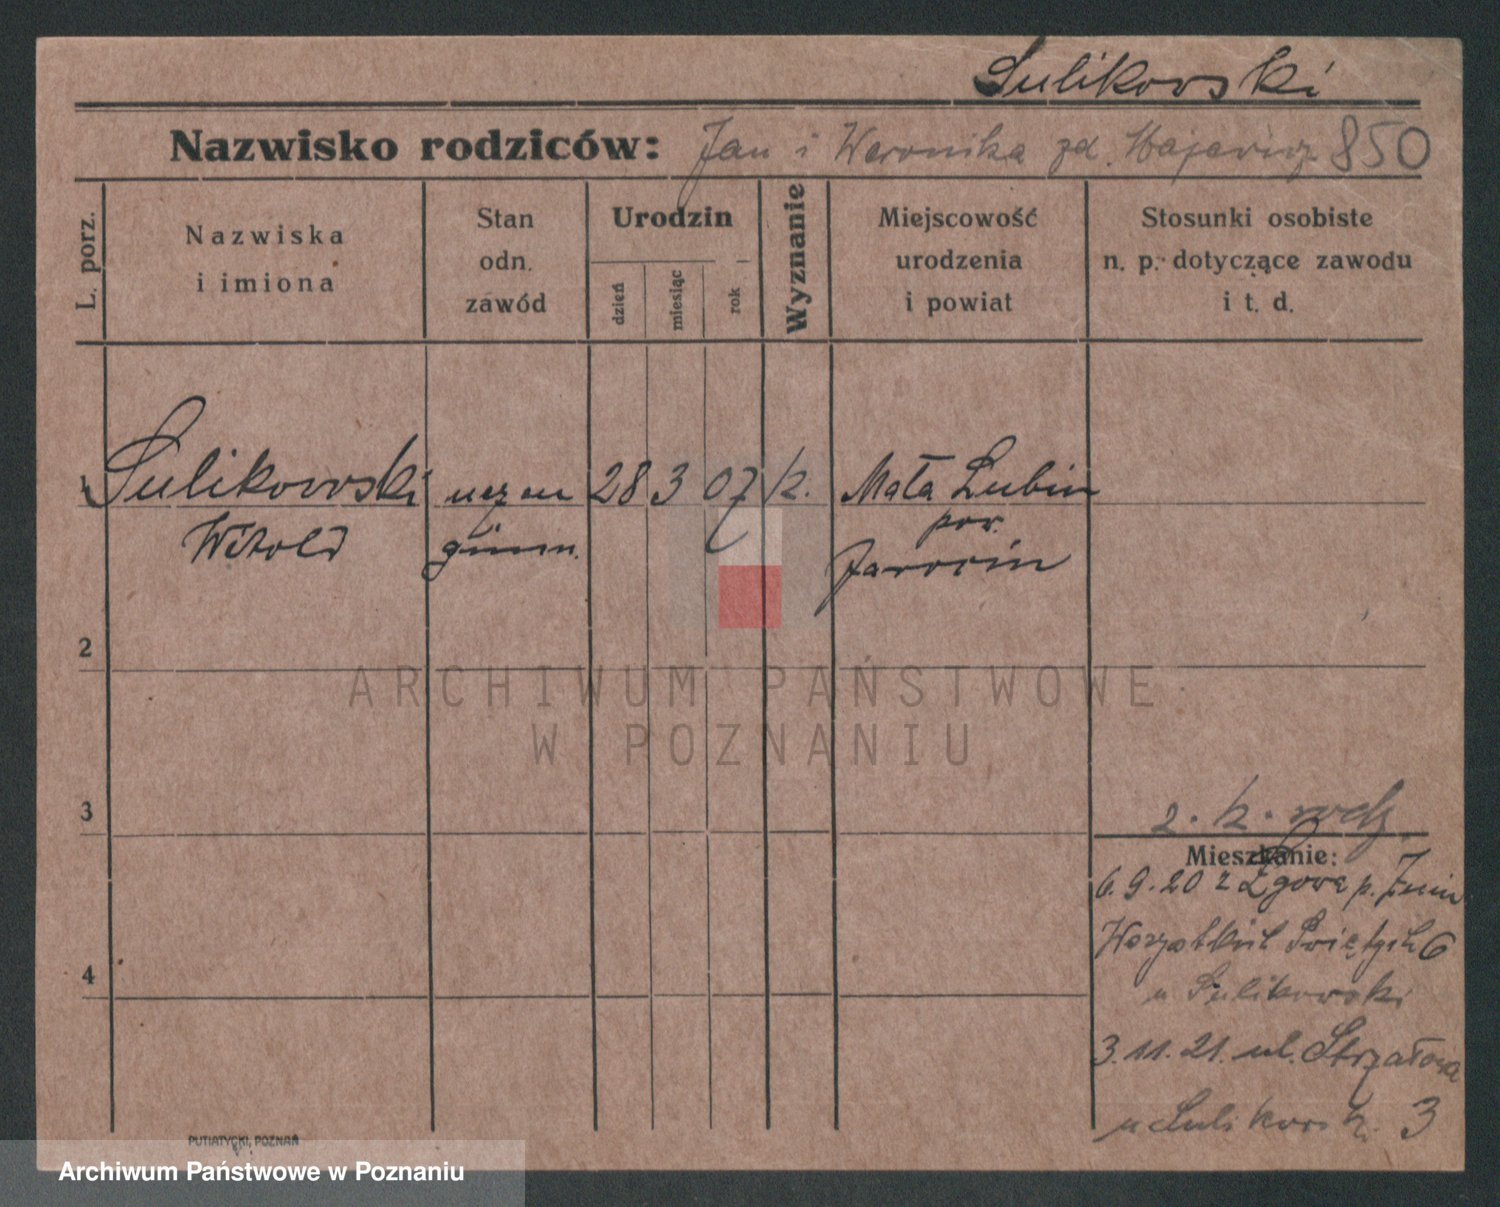 Sulikowski
Nazwisko rodziców: Jan i Weronika zd. 850
L. porz.
Nazwiska
i imiona
Stan
odn.
zawód
Urodzin
dzień
miesiąc
rok
Wyznanie
Miejscowość
urodzenia
i powiat
Stosunki osobiste
n. p. dotyczące zawodu
i t. d.
1 Sulikowski uczeń 28 3 07 k. Mała Lubin
Witold gimn. pow.
Jarocin
2
ARCHIWUM PAŃSTWOWE
W POZNANIU
3
z. k. rodz.
Mieszkanie:
6.9.20 z p. Żnin
Wszystkich Świętych 6
u Sulikowski
4
3.11.21. ul. Strzałowa
u Sulikowski. 3
PUTIATYCKI, POZNAŃ
Archiwum Państwowe w Poznaniu